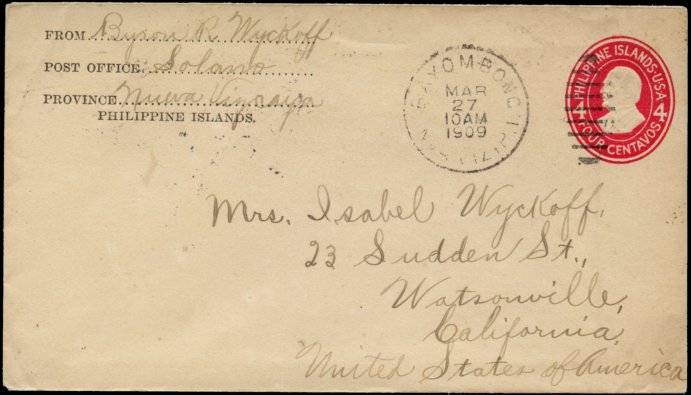 FROM Byron R. Wyckoff
POST OFFICE Solano
PROVINCE Nueva Vizcaya
PHILIPPINE ISLANDS.
BAYOMBONG
MAR
27
10AM
1909
PHILIPPINE ISLANDS·U.S.A.
4 4
FOUR CENTAVOS
Mrs. Isabel Wyckoff,
23 Sudden St.,
Watsonville,
California,
United States of America